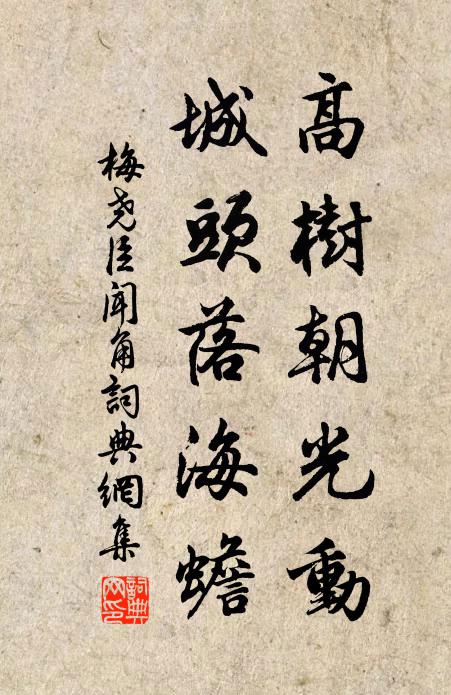 高樹朝光動
城頭落海蟾
梅尧臣闻角詞典網集
詞典网印